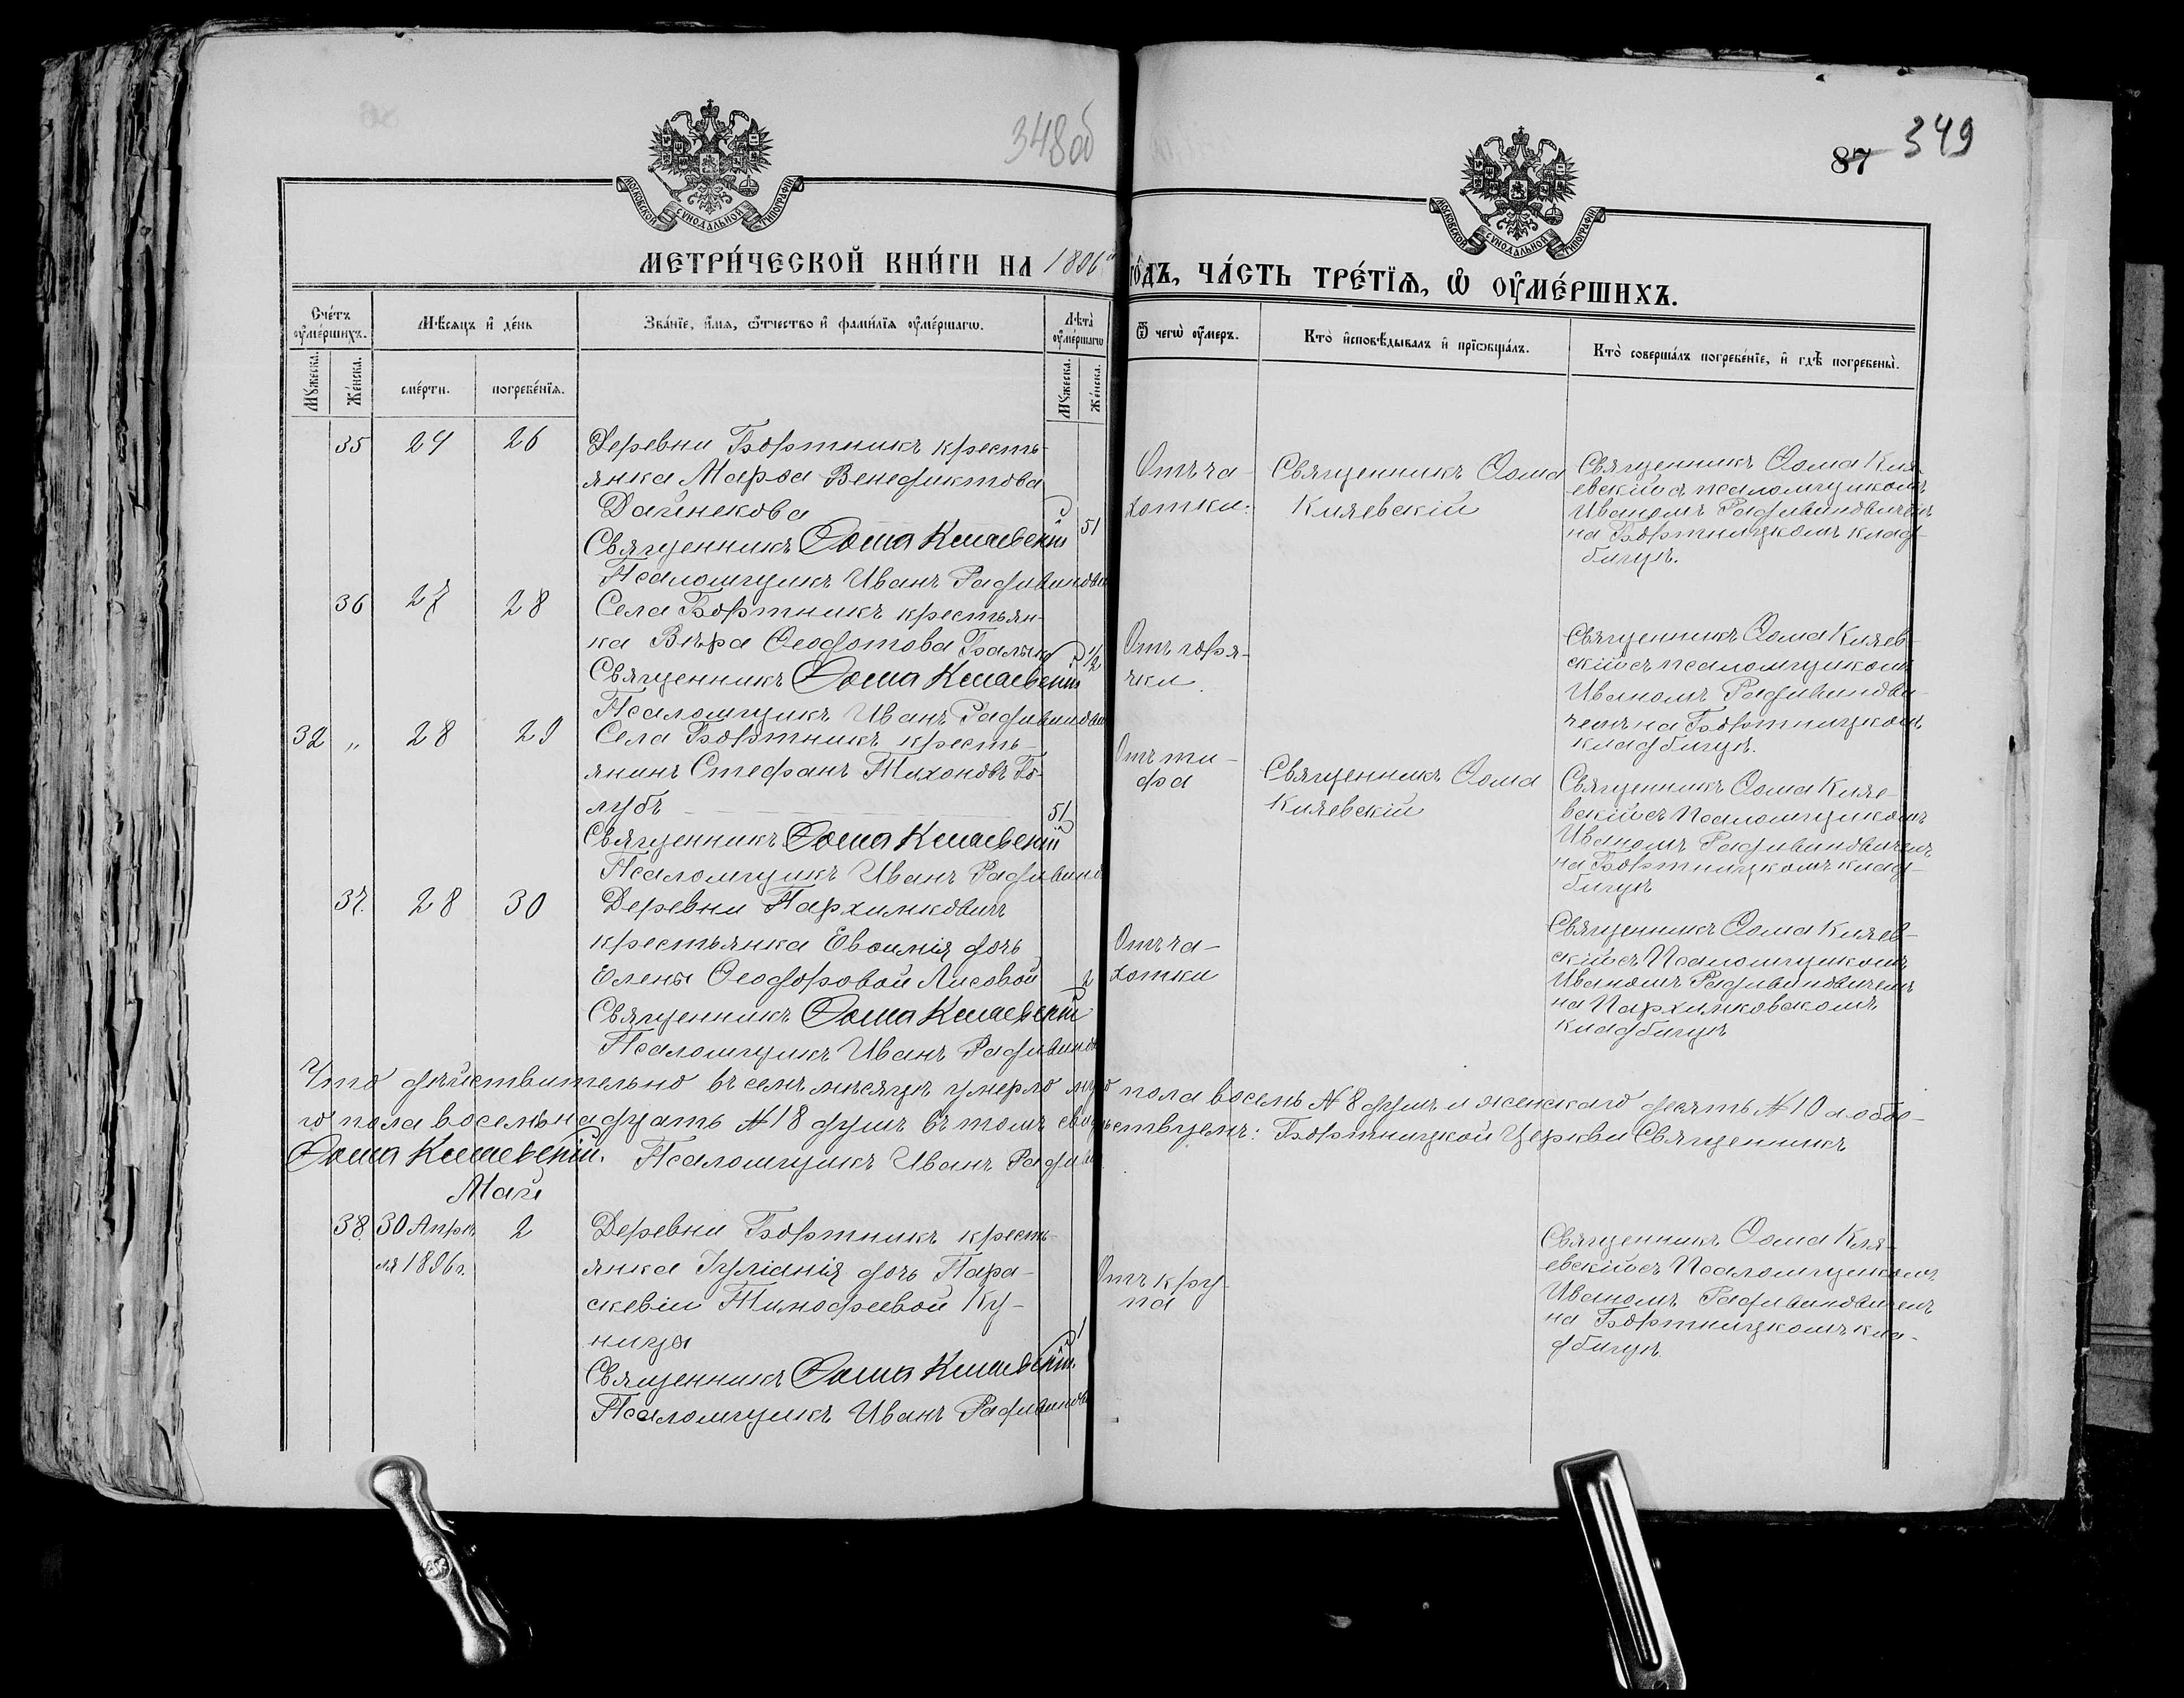 348об
349
87
МОСКОВСКОЙ СѴНОДАЛЬНОЙ ТИПОГРАФІИ
МОСКОВСКОЙ СѴНОДАЛЬНОЙ ТИПОГРАФІИ
МЕТРИ́ЧЕСКОЙ КНИ́ГИ НА 1896й
ГО́ДЪ, ЧА́СТЬ ТРЕ́ТЇѦ, Ѡ҆ ОУ҆МЕ́РШИХЪ.
Сче́тъ оу҆ме́ршихъ.
Мꙋ́жеска.
Же́нска.
Мѣ́сѧцъ и҆ де́нь
сме́рти.
погребе́нїѧ.
Зва́нїе, и҆́мѧ, ѻ҆́тчество и҆ фами́лїѧ оу҆ме́ршагѡ.
Лѣ́та оу҆ме́ршагѡ
Мꙋ́жеска.
Же́нска.
Ѿ чегѡ̀ оу҆́меръ.
Кто̀ и҆сповѣ́дывалъ и҆ прїѡбща́лъ.
Кто̀ соверша́лъ погребе́нїе, и҆ гдѣ̀ погребены̀.
35 24 26
Деревни Бортникъ кресть-
янка Марѳа Венедиктова
Дайнекова
51
Священникъ Ѳома Кляевскій
Псаломщикъ Иванъ
Отъ ча-
хотки.
Священникъ Ѳома
Кляевскій
Священникъ Ѳома Кля-
евскій съ псаломщикомъ
Иваномъ
на Бортницкомъ клад-
бищѣ.
36 27 28
Села Бортникъ крестьян-
ка Вѣра Ѳеодотова
1/2
Священникъ Ѳома Кляевскій
Псаломщикъ Иванъ
Отъ горя-
чки
Священникъ Ѳома Кляев-
скій съ псаломщикомъ
Иваномъ
чемъ на Бортницкомъ
кладбищѣ.
32 „ 28 29
Села Бортникъ кресть-
янинъ Стефанъ Тихоновъ Го-
лубъ
51
Священникъ Ѳома Кляевскій
Псаломщикъ Иванъ
Отъ ти-
фа
Священникъ Ѳома
Кляевскій
Священникъ Ѳома Кляе-
вскій съ Псаломщикомъ
Иваномъ
на Бортницкомъ клад-
бищѣ
37. 28 30
Деревни Пархимковичъ
крестьянка Евѳимія дочь
Елены Ѳеодоровой Лисовой
2
Священникъ Ѳома Кляевскій
Псаломщикъ Иванъ
Отъ ча-
хотки
Священникъ Ѳома Кляев-
скій съ Псаломщикомъ
Иваномъ
на Пархимковскомъ
кладбищѣ
Что дѣйствительно въ семъ мѣсяцѣ умерло пола восемь № 8 душъ и женскаго десять № 10 а обое-
го пола восемьнадцать № 18 душъ въ томъ свидѣтельствуемъ: Бортницкой Церкви Священникъ
Ѳома Кляевскій. Псаломщикъ Иванъ
Май
38. 30 Апрѣ- 2
ля 1896 г.
Деревни Бортникъ кресть-
янка Іуліанія дочь Пара-
скевіи Тимофеевой Ку-
ницы
1
Священникъ Ѳома Кляевскій
Псаломщикъ Иванъ
Отъ кру-
па
Священникъ Ѳома Кля-
евскій съ Псаломщикомъ
Иваномъ
на Бортницкомъ кла-
дбищѣ.